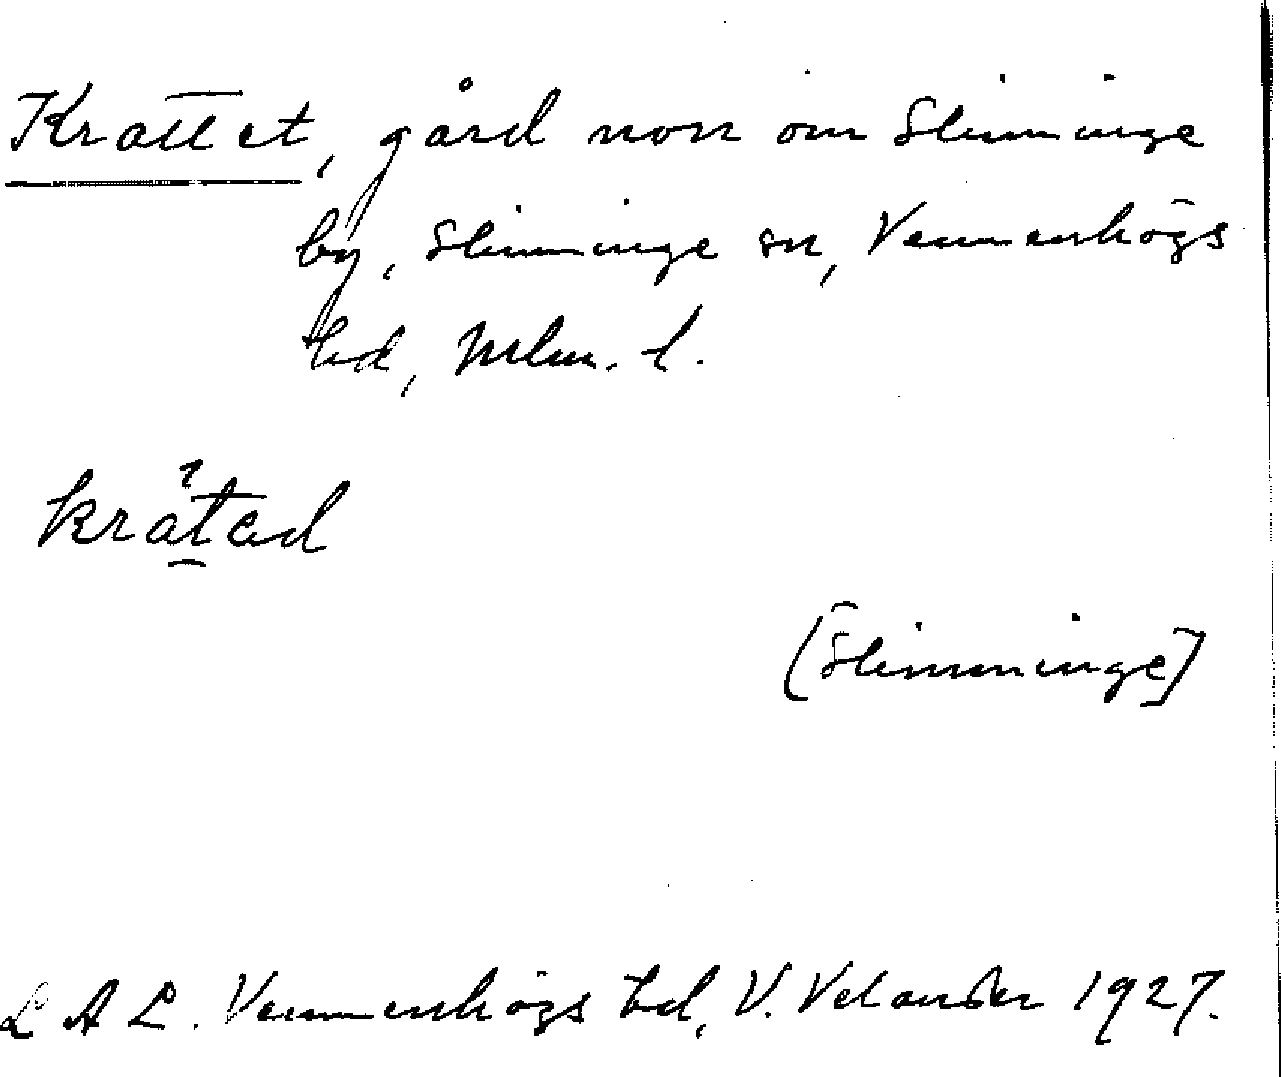 Krattet, gård norr om Slimminge
by, Slimminge sn, Vemmenhögs
hd, Mlm. l.
kratad
[Slimminge]
L A L. Vemmenhögs hd, V. Velander 1927.